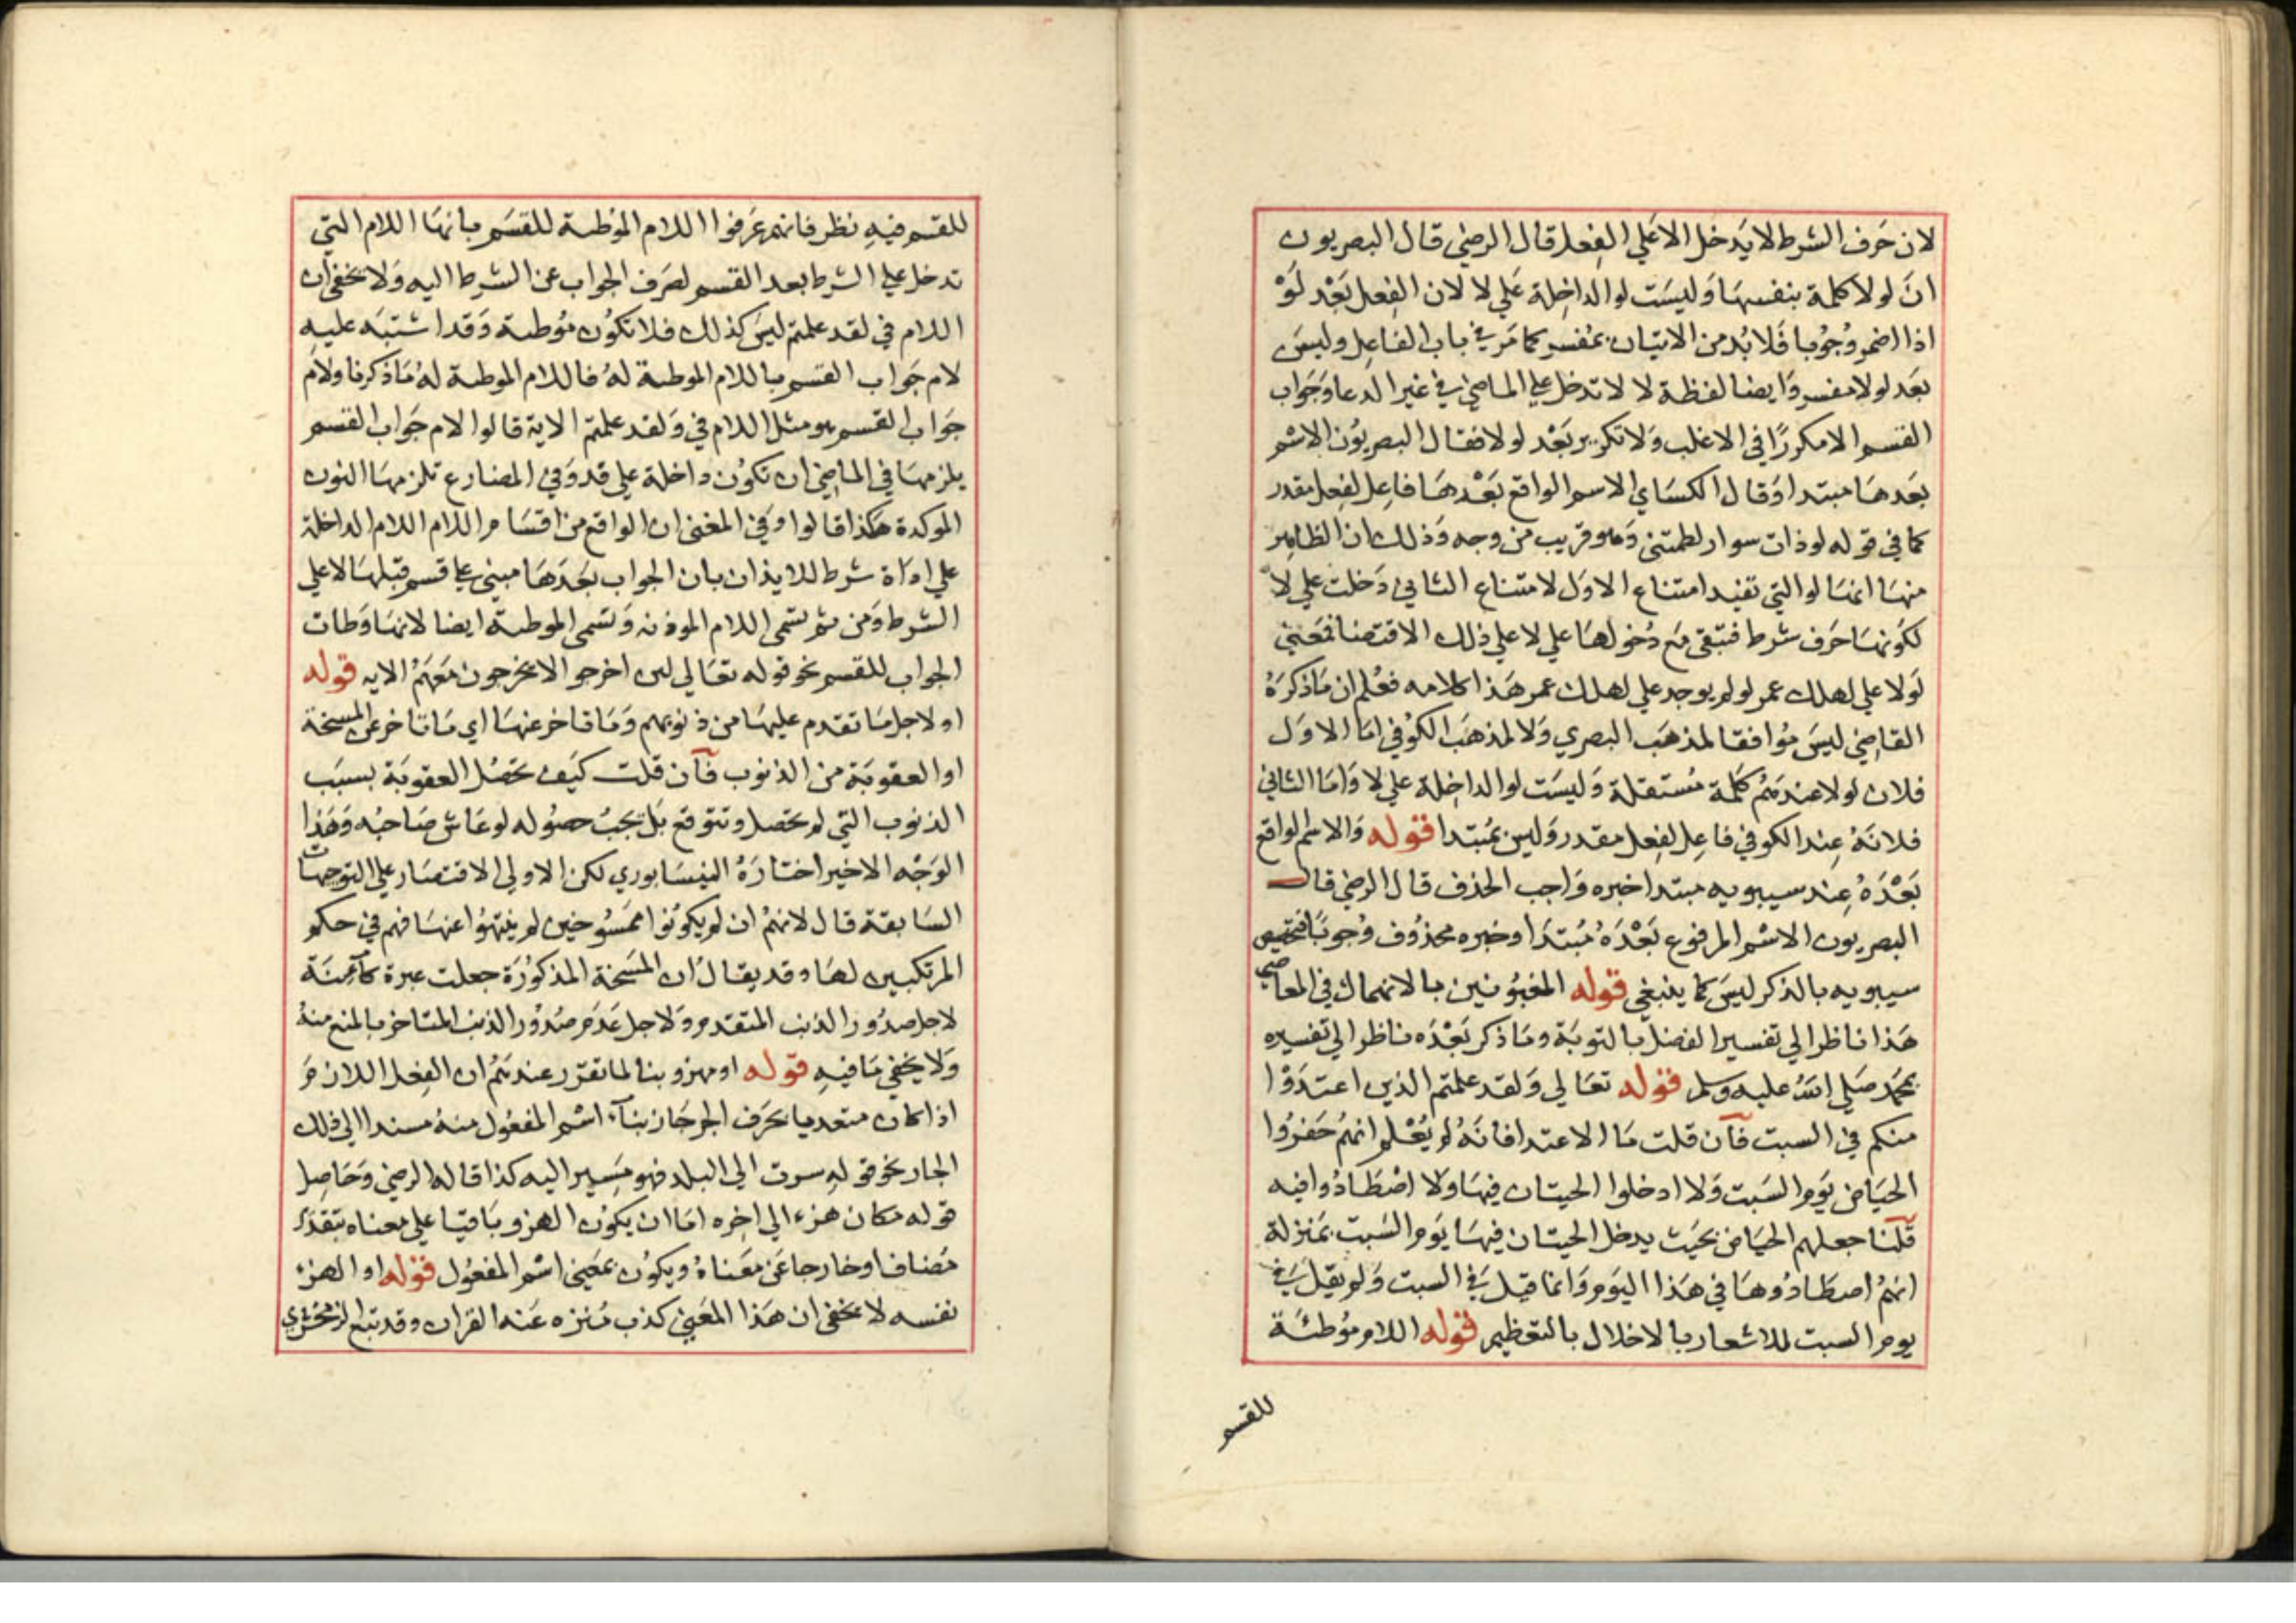 لان حرف الشرط لا يدخل الا علي الفعل قال الرضي قال البصريون
ان لولا كلمة بنفسها وليست لو الداخلة علي لا لان الفعل بعد لو
اذا اضمر وجوبا فلا بد من الاتيان بمفسر كما مر في باب الفاعل وليس
بعد لولا مفسر وايضا لفظة لا لا تدخل علي الماضي في غير الدعا وجواب
القسم الا مكررا في الاغلب ولا تكرير بعد لولا فقال البصريون الاسم
بعدها مبتدا وقال الكساي الاسم الواقع بعدها فاعل لفعل مقدر
كما في قوله لو ذات سوار لطمتني وهو قريب من وجه وذلك ان الظاهر
منها انها لو التي تفيد امتناع الاول لامتناع الثاني دخلت علي لا
لكونها حرف شرط فتبقى مع دخولها علي لا علي ذلك الاقتضا فمعني
لولا علي لهلك عمر لو لم يوجد علي لهلك عمر هذا كلامه فعلم ان ما ذكره
القاضي ليس موافقا لمذهب البصري ولا لمذهب الكوفي اما الاول
فلان لولا عندهم كلمة مستقلة وليست لو الداخلة علي لا واما الثاني
فلانه عند الكوفي فاعل لفعل مقدر وليس بمبتدا قوله والاسم الواقع
بعده عند سيبويه مبتدا خبره واجب الحذف قال الرضي قال
البصريون الاسم المرفوع بعده مبتدا وخبره محذوف وجوبا فتخصيص
سيبويه بالذكر ليس كما ينبغي قوله المغبونين بالانهماك في المعاصي
هذا ناظر الي تفسير الفضل بالتوبة وما ذكر بعده ناظر الي تفسيره
بمحمد صلي الله عليه وسلم قوله تعالي ولقد علمتم الذين اعتدوا
منكم في السبت فان قلت ما الاعتدا فانه لم يعلم انهم حفروا
الحياض يوم السبت ولا ادخلوا الحيتان فيها ولا اصطادوا فيه
قلنا جعلهم الحياض بحيث يدخل الحيتان فيها يوم السبت بمنزلة
انهم اصطادوها في هذا اليوم وانما قيل في السبت ولم يقل في
يوم السبت للاشعار بالاخلال بالتعظيم قوله اللام موطئة
للقسم
للقسم فيه نظر فانهم عرفوا اللام الموطية للقسم بانها اللام التي
تدخل علي الشرط بعد القسم لصرف الجواب عن الشرط اليه ولا يخفى ان
اللام في لقد علمتم ليس كذلك فلا تكون موطية وقد اشتبه عليه
لام جواب القسم باللام الموطية له فاللام الموطية له ما ذكرنا ولام
جواب القسم هو مثل اللام في ولقد علمتم الاية قالوا لام جواب القسم
يلزمها في الماضي ان تكون داخلة علي قد وفي المضارع تلزمها النون
الموكدة هكذا قالوا وفي المغني ان الواقع من اقسام اللام اللام الداخلة
علي اداة شرط للايذان بان الجواب بعدها مبني علي قسم قبلها لا علي
الشرط ومن ثم تسمى اللام الموذنه وتسمى الموطية ايضا لانها وطات
الجواب للقسم نحو قوله تعالي لين اخرجوا لا يخرجون معهم الايه قوله
او لاجل ما تقدم عليها من ذنوبهم وما تاخر عنها اي ما تاخر عن المسخة
او العقوبة من الذنوب فان قلت كيف تحصل العقوبة بسبب
الذنوب التي لم تحصل وتتوقع بل يجب حصوله لو عاش صاحبه وهذا
الوجه الاخير اختاره النيسابوري لكن الاولي الاقتصار علي التوجهات
السابقة قال لانهم ان لم يكونوا ممسوخين لم ينتهوا عنها فهم في حكم
المرتكبين لها وقد يقال ان المسخة المذكورة جعلت عبرة كآمنة
لاجل صدور الذنب المتقدم ولاجل عدم صدور الذنب المتاخر بالمنع منه
ولا يخفي ما فيه قوله او مهزو بنا لما تقرر عندهم ان الفعل اللازم
اذا كان متعديا بحرف الجر جاز بناء اسم المفعول منه مسندا الي ذلك
الجار نحو قوله سرت الي البلد فهو مسير اليه كذا قاله الرضي وحاصل
قوله مكان هزء الي اخره اما ان يكون الهزو باقيا علي معناه بتقدير
مضاف او خارجا عن معناه ويكون بمعني اسم المفعول قوله او الهزء
نفسه لا يخفى ان هذا المعني كذب منزه عنه القران وقد تبع الزمخشري